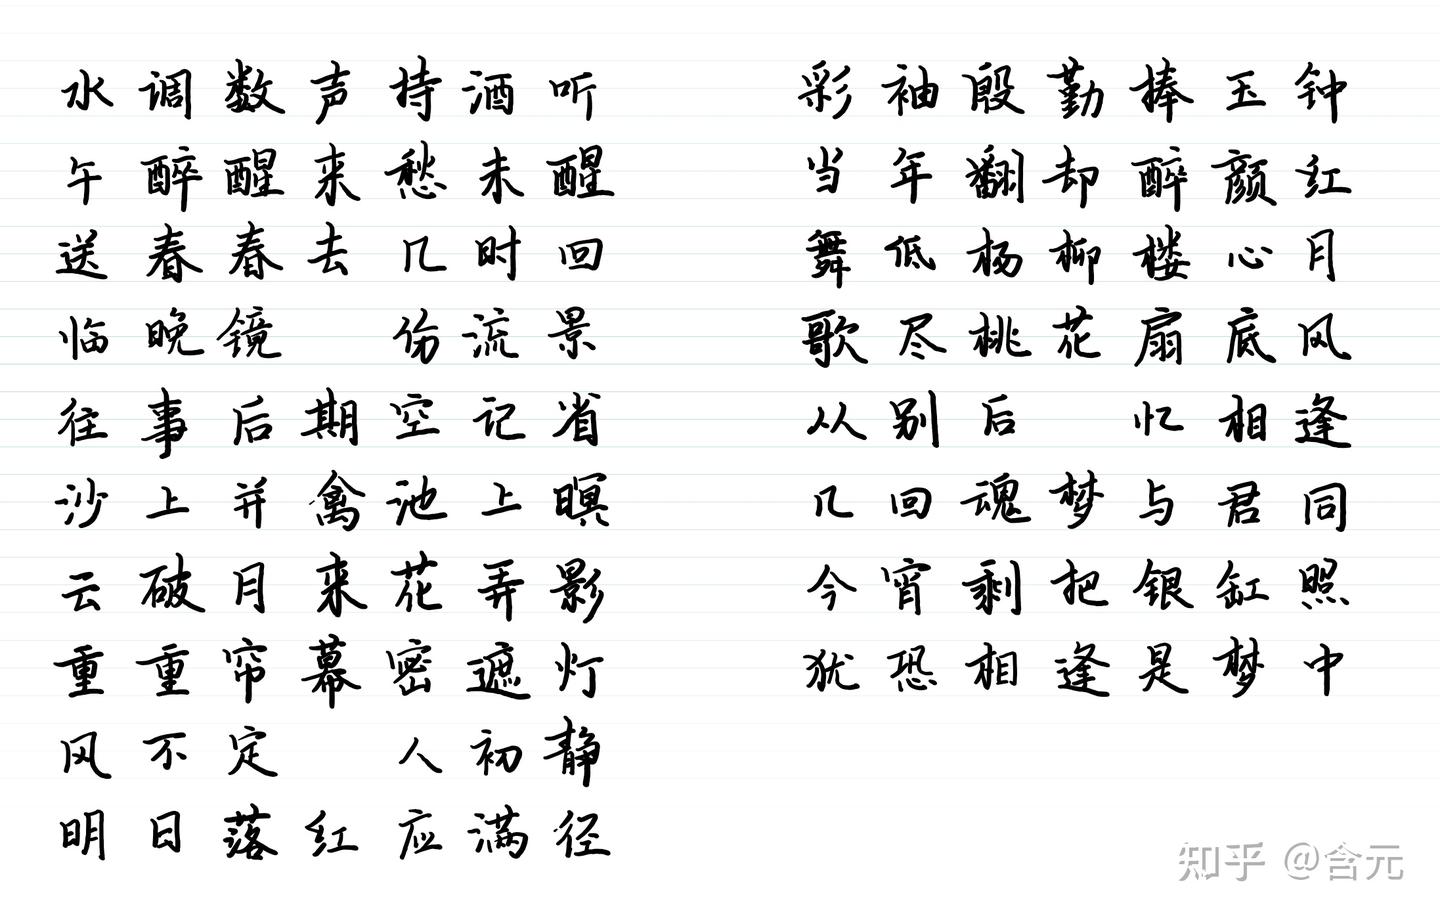 水调数声持酒听
午醉醒来愁未醒
送春春去几时回
临晚镜 伤流景
往事后期空记省
沙上并禽池上暝
云破月来花弄影
重重帘幕密遮灯
风不定 人初静
明日落红应满径
彩袖殷勤捧玉钟
当年翻却醉颜红
舞低杨柳楼心月
歌尽桃花扇底风
从别后 忆相逢
几回魂梦与君同
今宵剩把银缸照
犹恐相逢是梦中
知乎 @含元